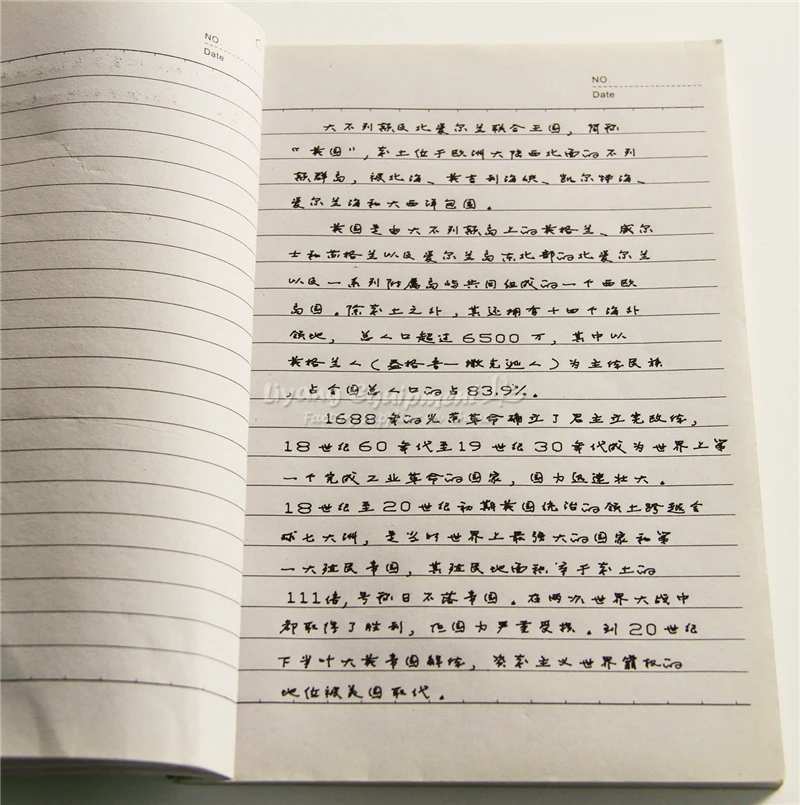 NO
Date
NO
Date
大不列颠及北爱尔兰联合王国，简称
“英国”，本土位于欧洲大陆西北面的不列
颠群岛，被北海、英吉利海峡、凯尔特海、
爱尔兰海和大西洋包围。
英国是由大不列颠岛上的英格兰、威尔
士和苏格兰以及爱尔兰岛东北部的北爱尔兰
以及一系列附属岛屿共同组成的一个西欧
岛国。除本土之外，其还拥有十四个海外
领地，总人口超过6500万，其中以
英格兰人（盎格鲁—撒克逊人）为主体民族
，占全国总人口的占83.9%。
Liyang Equipment
1688年的光荣革命确立了君主立宪政体，
18世纪60年代至19世纪30年代成为世界上第
一个完成工业革命的国家，国力迅速壮大。
18世纪至20世纪初期英国统治的领土跨越全
球七大洲，是当时世界上最强大的国家和第
一大殖民帝国，其殖民地面积等于本土的
111倍，号称日不落帝国。在两次世界大战中
都取得了胜利，但国力严重受损。到20世纪
下半叶大英帝国解体，资本主义世界霸权的
地位被美国取代。